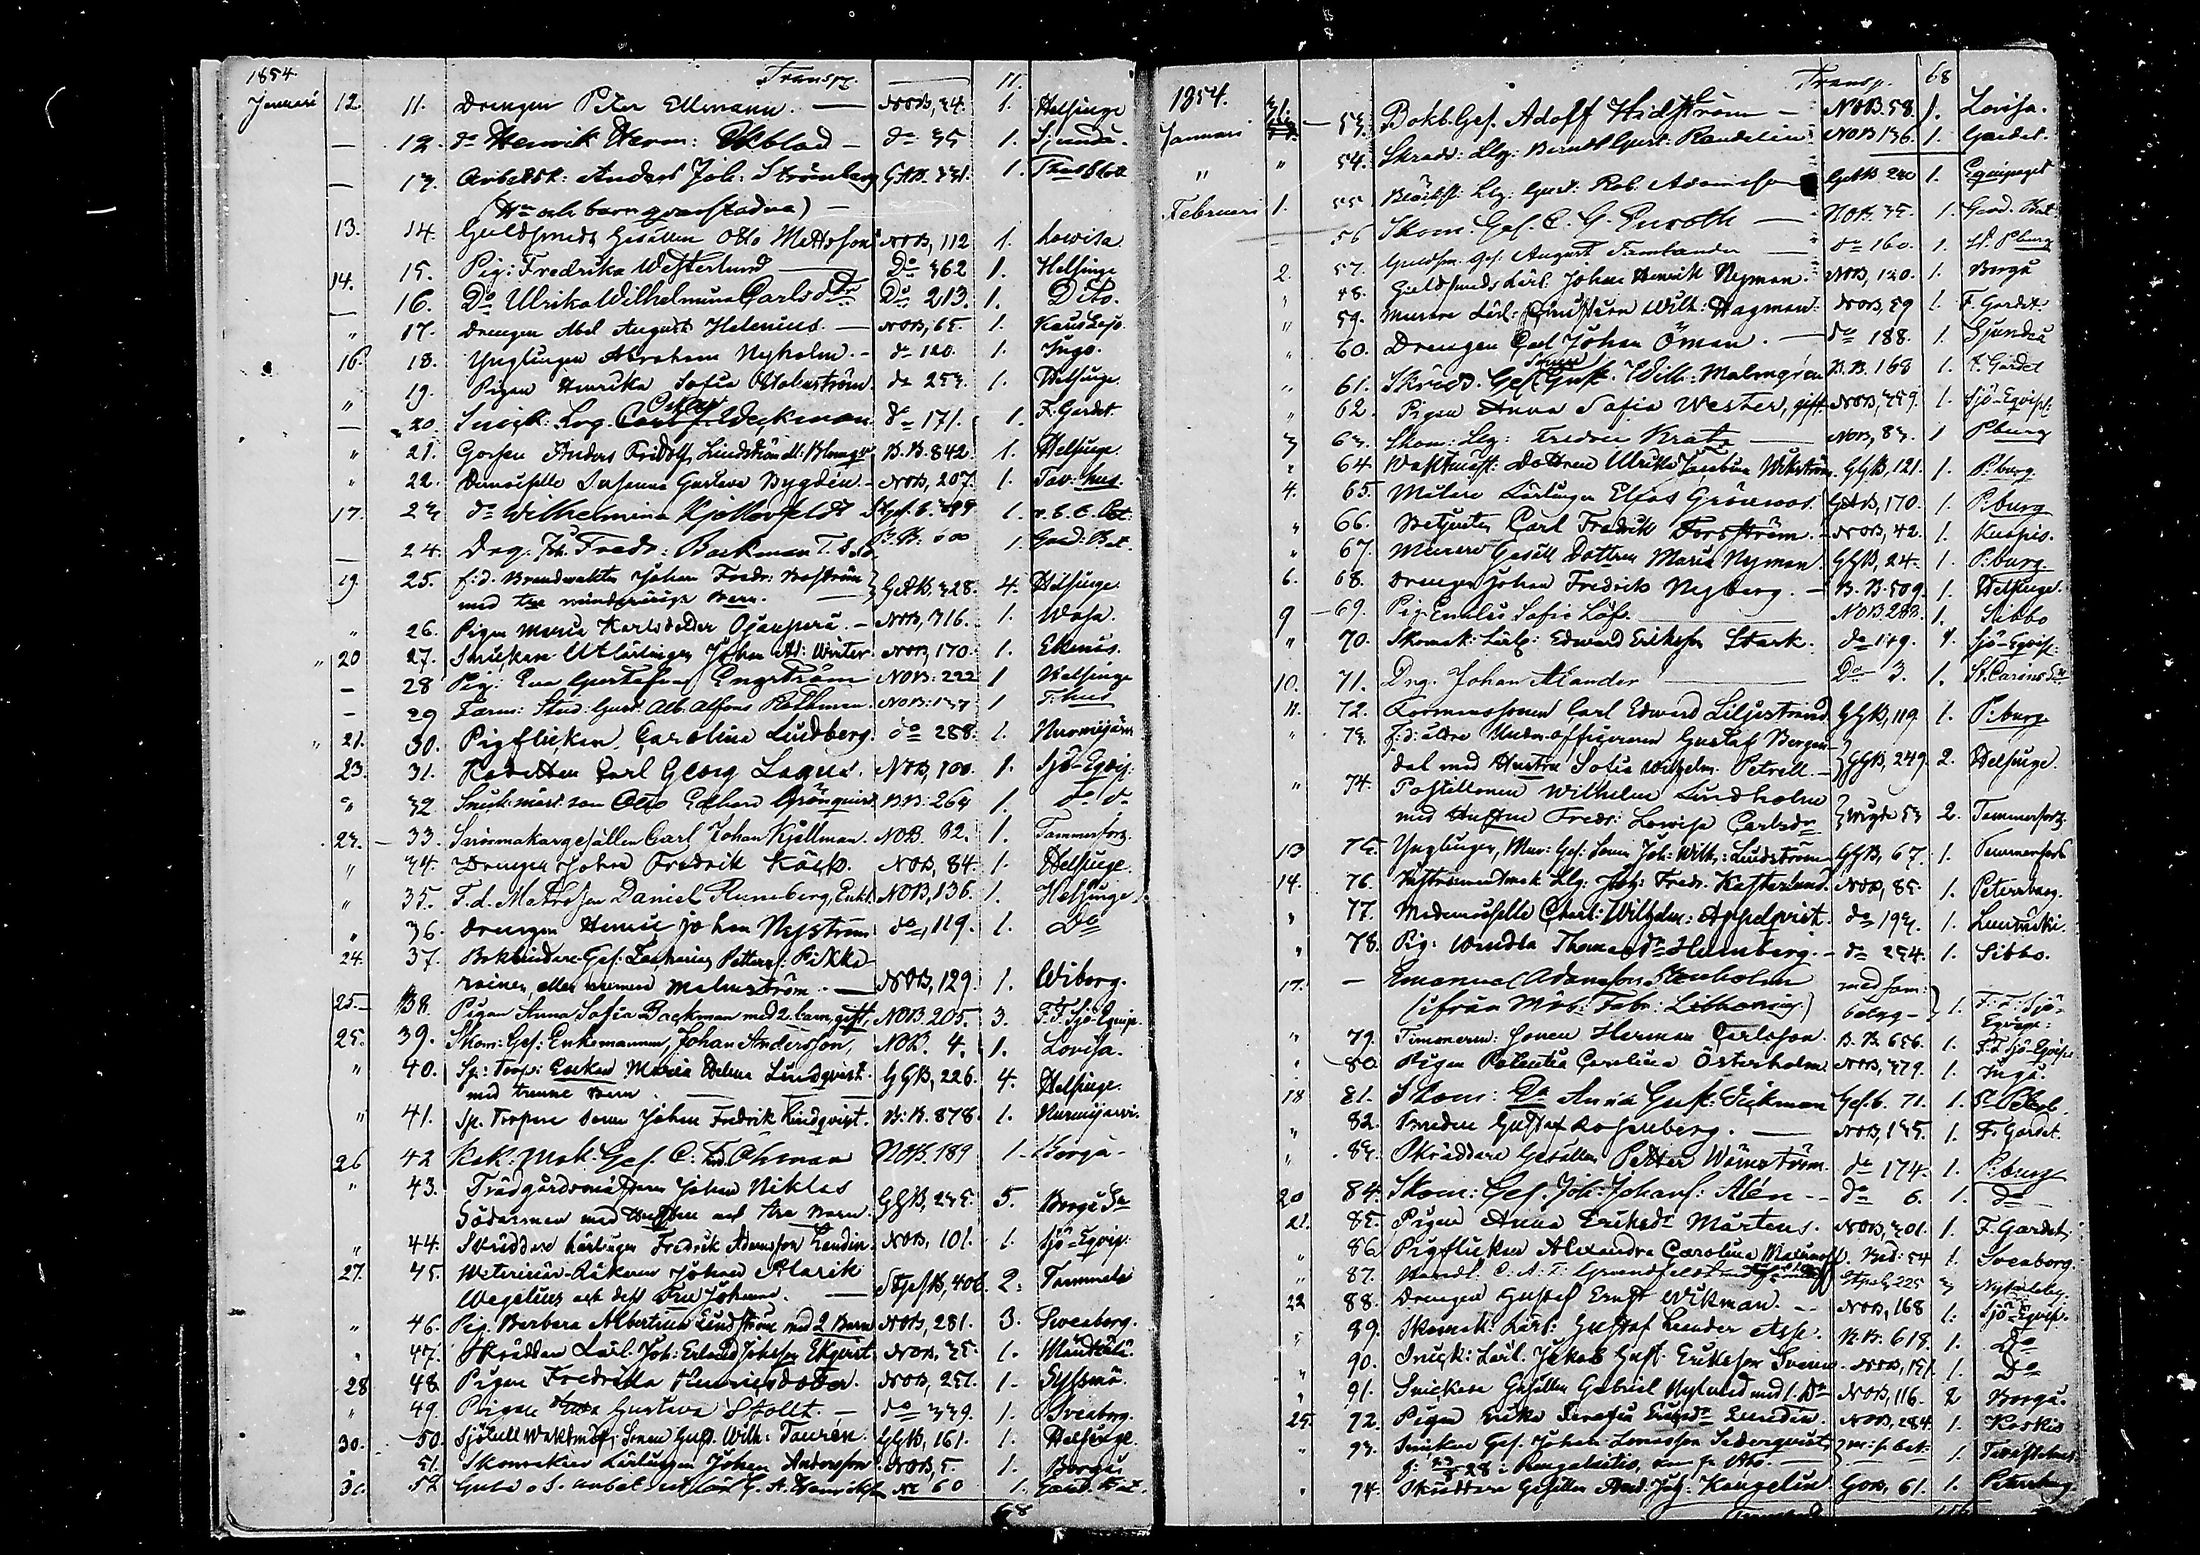 1854. Transp. 11.
Januari 12. 11. Drengen Peter Ellmann. — NOB, 34. 1. Helsinge
— 12. do Henrik Herm: Ekblad — do 35 1. Sjundå.
— 13. Arbetsk: Anders Joh: Strömberg 331. 1.
och barn qvarstadna) —
13. 14. Guldsmeds Gesällen Otto Mattsson NOB, 112 1. Lowisa
14. 15. Pig: Fredrika Westerlund Do 362 1. Helsinge
— 16. Do Ulrika Wilhelmina Carlsdr Do 213. 1. Dito.
" 17. Drengen Abel August Helenius. — NOB, 65. 1.
16. 18. Ynglingen Abraham Nyholm. — do 120. 1. Ingo.
19. Pigan Henrika Sofia do 253. 1. Helsinge.
" 20. Snick: Lrg. Oskar Weckman do 171. 1. F. Gardet.
" 21. Gossen Anders Fridolf Lindström B.B. 842. 1. Helsinge.
" 22. Demoiselle Susanna Gustava Bygdén. — NOB, 207. 1. Tav:hus.
17. 23 do Wilhelmina 1.
— 24. Drg. Joh. Fredr: Backman B.B: 600 1. Gard: Bat.
19. 25. f:d. Brandvakten Johan Fredr: Boström 328. 4. Helsinge.
med tre minderåriga Barn. —
" 26. Pigan Maria Karlsdotter — NOB, 716. 1. Wasa.
" 20 27. Snickare Utlärlingen Johan Ad: Winter NOB, 170. 1. Ekenäs.
— 28 Pig: Eva Gustafva Engström NOB: 222 1 Helsinge
— 29 Farm: Stud: Gust: Alb. Alfons NOB: 137 1 T:hus
" 21. 30. Pigflickan Carolina Lindberg. do 288. 1. Nurmijärvi
23. 31. Kadetten Carl Georg Lagus. NOB, 100. 1. Sjö-Eqvip.
" 32 Snick: mäst. son Otto Edvard Grönquist B.B: 264 1. do do
23. — 33. Snörmakaregesällen Carl Johan Kjellman. NOB. 32. 1. Tammerfors.
" 34. Drengen Johan Fredrik Käck. NOB, 84. 1. Helsinge.
" 35. F.d. Matrosen Daniel Runeberg, Enkl. NOB, 136. 1. Helsinge.
" 36. Drengen Henric Johan Nyström do, 119. 1. Do
24. 37. Bokbindare Ges: Zacharias Petterss: Pikka
rainen, eller numera Malmström. — NOB, 129. 1. Wiborg.
25. 38. Pigan Anna Sofia Backman med 2 barn, gift, NOB. 205. 3. F.F. Sjö-Eqvip.
25. 39. Skom: Ges: Enkemannen, Johan Andersson, NOB. 4. 1. Lovisa.
" 40. Sp: Torp: Enkan Maria Helena Lindqvist GGB, 226. 4. Helsinge.
med trenne Barn
" 41. Sp. Torpare Sonen Johan Fredrik Lindqvist. B:B. 878. 1. Nurmijärvi.
26 42 Kak: mak: Ges. C. Fred Öhman NOB. 189 1. Borgå.
" 43. Trädgårdsmästaren Johan Niklas
Söderman med Hustru och tre Barn. GGB, 235. 5. Borgå Sn
" 44. Skräddare Lärlingen Fredrik Adamsson Landin. NOB, 101. 1. Sjö-Eqvip:
27. 45. Veterinär-Läkaren Johan Alarik
Wegelius och dess Fru Johanna. — 406. 2. Tammela
" 46. Pig. Barbara Albertina Lindström med 2 Barn NOB, 281. 3. Sveaborg.
" 47. Skräddare Lärl. Joh: Erland Johsson Ekqvist. NOB, 35. 1. Mäntsälä.
28 48. Pigan Fredrika Henricsdotter. NOB, 251. 1. Sysmä.
" 49. Pigan Gustava Stolt. — do 339. 1. Sveaborg.
30. 50. Sjötull Waktmäst: Sonen Gust. Wilh: Taurén. GGB, 161. 1. Helsinge.
51. Skomakare Lärlingen Johan Andersson NOB, 5. 1. Borgå.
31. 52 Guld o S. arbet. lärl G. A. 60 1. Gard. Bat.
68
1854. Transp. 68
Januari 31. — 53. Bokb. Ges. Adolf Hidström — NOB. 58. 1. Lovisa.
" 54. Skrädd: Lrg: Berndt Gust: Randelin NOB 136. 1. Gardet.
" 55 Lrg: Gust. Rob. Adamsson 240 1. Equipaget
Februari 1. 56 Skom. Ges. C. G. Enroth — NOB. 35. 1. Gard. Bat.
— 57. Guldsm. Ges. August do 160. 1. St. Pburg
2. 58. Guldsmeds Lärl. Johan Henrik Nyman. NOB, 130. 1. Borgå
" 59. Murare Lärl: Christian Wilh: Hagman. NOB, 59 1. F. Gardet.
" 60. Drengen Carl Johan Öman. — do 188. 1. Sjundeå
" 61. Skrädd. Ges. Gust. Wilh: Malmgrén B.B. 168 1. F. Gardet
" 62. Pigan Anna Sofia Wester, gift NOB, 359. 1. Sjö-Eqvip:
3 63. Skom: Lrg: Fredric Kratz NOB, 83. 1 Pburg
" 64 Waktmäst: Dottren Ulrika Jacobina Wikström. GGB, 121. 1. P:burg.
4. 65. Målare Lärlingen Elias Grönroos. 170. 1. P:burg
" 66. Betjenten Carl Fredrik Forsström. NOB, 42. 1. Kuopio.
" 67. Murare Gesäll Dottren Maria Nyman. GGB, 24. 1. P:burg.
6. 68. Drengen Johan Fredrik Nyberg. — B.B. 509. 1. Helsinge.
9 — 69. Pig. Emelie Sofie Löf. NOB. 288. 1. Sibbo
" 70. Skomak: Lärl: Edvard Eriksson Stark. do 149. 1. Sjö-Eqvip:
10. 71. Drg. Johan Alander — Do 3. 1. St. Carins Sn
11. 72. Formanssonen Carl Edward Liljestrand GGB, 119. 1. P:burg.
" 73. f:d: äldre Under-officeraren Gustaf Bergen-
dal med Hustru Sofia Wilhelm. Petrell. — GGB, 249. 2. Helsinge.
" 74. Postiljonen Wilhelm Lindholm
med Hustru Fredr: Lovisa Carlsdr 53 2. Tammerfors.
13 75. Ynglingen, Mur: Ges: Sonen Joh: Wilh: Lindström GGB, 67. 1. Tammerfors
14. 76. Instrumentmak. Lrg. Joh: Fredr: NOB, 85. 1. Petersburg.
" 77. Mademoiselle Charl: Wilhelm: Appelqvist. do 193. 1.
" 78. Pig: Wendla Thomasdr Heimberg. — do 254. 1. Sibbo.
17. — Emanuel Adamsson Stenholm med fam:
(ifrån Mob. Fabr: ) betyg — 1. F:F: Sjö-
Eqvip:
" 79. Timmerm: Sonen Herman Carlsson. B. B. 656. 1. F.F. Sjö-Eqvip:
" 80. Pigan Carolina Österholm. NOB, 379. 1. Ingå.
18 81. Skom: Do Anna Gust: Dickman 71. 1.
" 82. Gustaf Rosenberg. — NOB, 135. 1. F. Gardet.
" 83. Skräddare Gesällen Petter Wärnström. do 174. 1. P:burg
20 84. Skom: Ges. Joh: Johans: Alén — do 6. 1. do
21. 85. Pigan Anna Eriksdr Mårtens. NOB, 301. 1. F. Gardet.
" 86 Pigflickan Alexandra Carolina 54 1. Sveaborg.
" 87. Handl: C. A. T. 225 3
22 88. Drengen Gustaf Ernst Wikman. — NOB, 168 1. Sjö-Eqvip.
" 89. Skomak: Lärl: Gustaf Leander Asp. B.B. 618. 1. Do
" 90. Snick: Lärl. Jakob Gust. Eriksson NOB, 151. 1. Do
" 91. Snickare Gesällen Gabriel Nylund med 1 Dr NOB, 116. 2 Borgå.
25. 92. Pigan Erika Serafia Ericsdr Lundin. NOB, 284. 1. Keskis
" 93. Snickare Ges. Johan 1. Tavastehus
" 94. Skräddare Gesällen And. Joh: Kangelin. 61. 1. Petersburg.